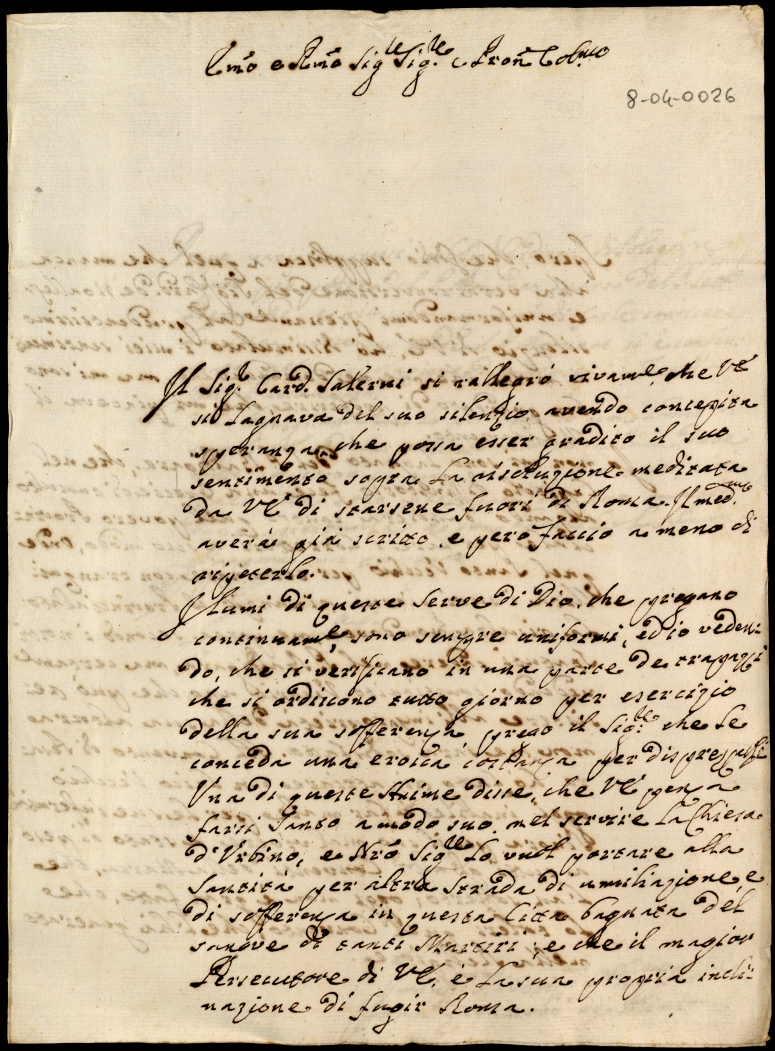 Emo e Rmo Sigle Sig.le e Pron Colmo
8-04-0026
Il Sig.r Card. Salerni si rallegrò vivame, che VE
si lagnava del suo silenzio avendo concepita
speranza, che possa esser gradito il suo
sentimento sopra la risoluzione meditata
da VE di starsene fuori di Roma. Il med.mo
averà già scritto, e però faccio a meno di
ripeterlo.
I lumi di queste Serve di Dio, che pregano
continuame, sono sempre uniformi, ed io veden-
do, che si verificano in una parte de trapazzi
che si ordiscono tutto giorno per esercizio
della sua sofferenza prego il Sig.re che le
conceda una eroica costanza per disprezzarli
Una di queste Anime disse, che VE pensa
farsi Santo a modo suo, nel servire la Chiesa
d'Urbino, e Nro Sigle lo vuol portare alla
Santità per altra strada di umiliazione, e
di sofferenza in questa Città bagnata del
sangue di tanti Martiri, e che il magior
Persecutore di VE, è la sua propria incli-
nazione di fugir Roma.